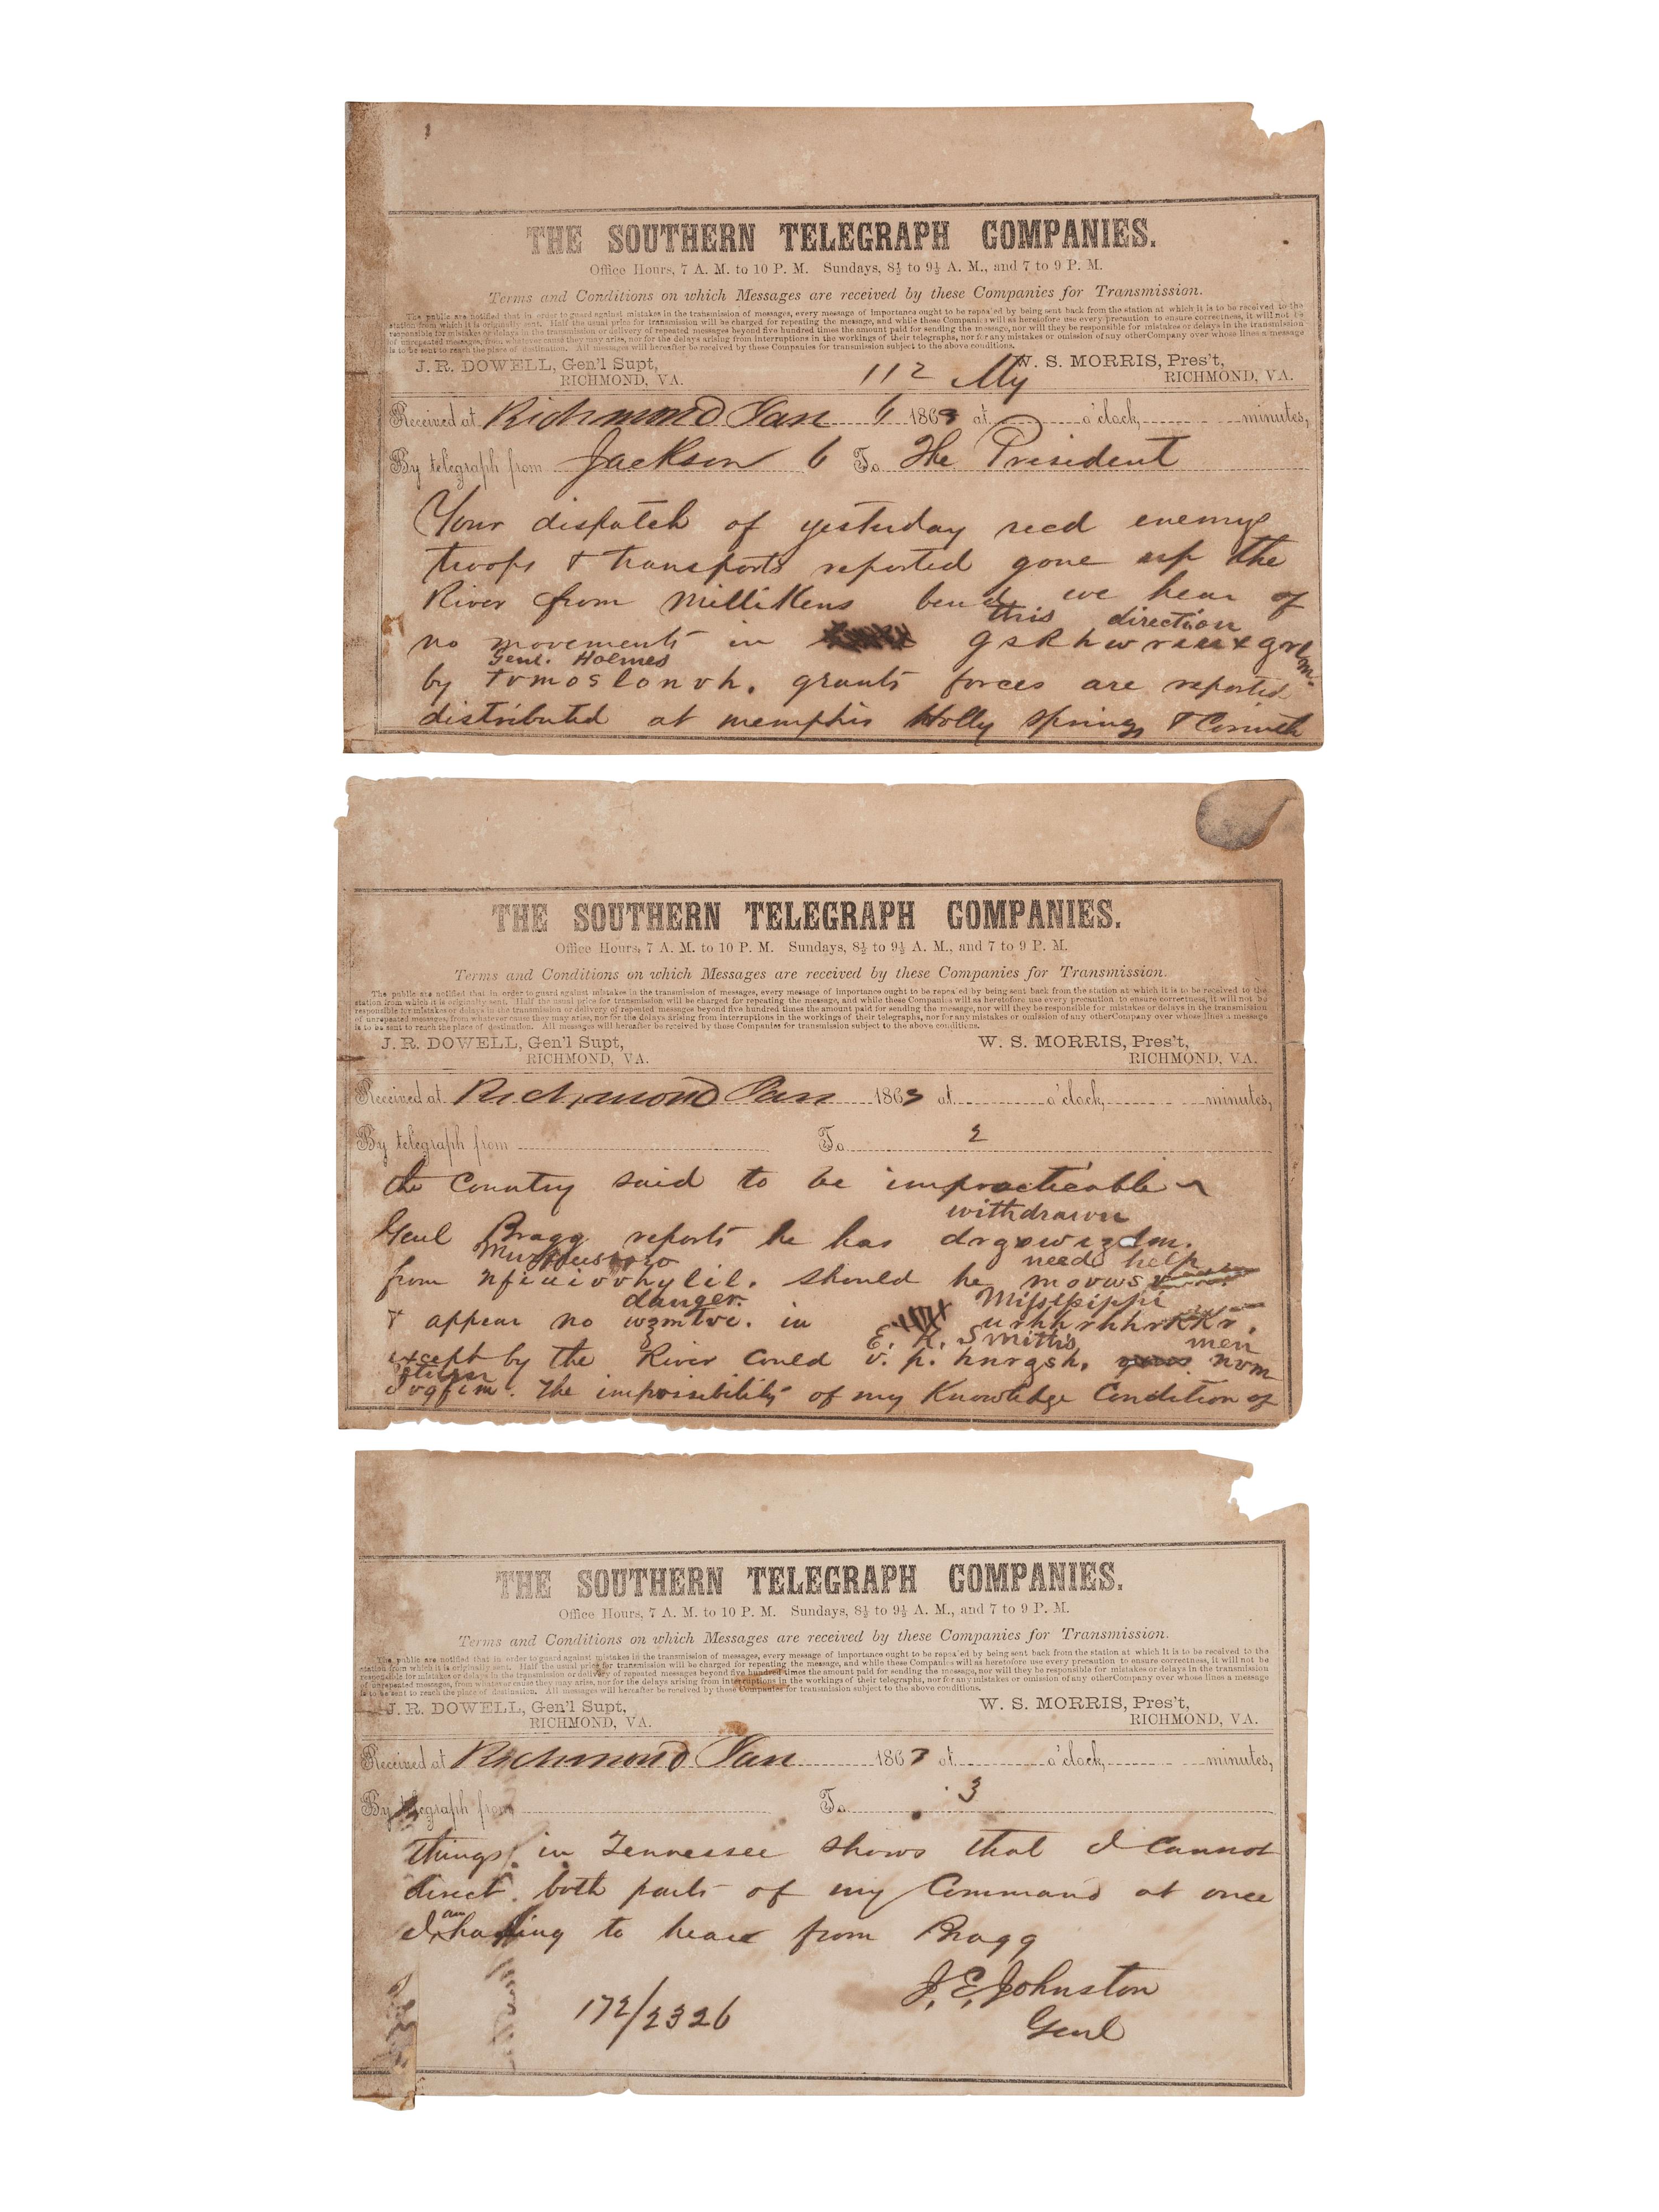 1
THE SOUTHERN TELEGRAPH COMPANIES.
Office Hours, 7 A. M. to 10 P. M. Sundays, 8½ to 9½ A. M., and 7 to 9 P. M.
Terms and Conditions on which Messages are received by these Companies for Transmission.
The public are notified that in order to guard against mistakes in the transmission of messages, every message of importance ought to be repeated by being sent back from the station at which it is to be received to the
station from which it is originally sent. Half the usual price for transmission will be charged for repeating the message, and while these Companies will as heretofore use every precaution to ensure correctness, it will not be
responsible for mistakes or delays in the transmission or delivery of repeated messages beyond five hundred times the amount paid for sending the message, nor will they be responsible for mistakes or delays in the transmission
of unrepeated messages, from whatever cause they may arise, nor for the delays arising from interruptions in the workings of their telegraphs, nor for any mistakes or omission of any other Company over whose lines a message
is to be sent to reach the place of destination. All messages will hereafter be received by these Companies for transmission subject to the above conditions.
J. R. DOWELL, Gen'l Supt, W. S. MORRIS, Pres't,
RICHMOND, VA. 112 RICHMOND, VA.
Received at Richmond Jan 6 1863 at o'clock, minutes,
By telegraph from Jackson 6 To The President
Your dispatch of yesterday recd enemys
troops & transports reported gone up the
River from Millikens bend we hear of
this direction
no movements in gskhw
Genl. Holmes
by tvmoslonvh. grants forces are reported
distributed at memphis Holly Springs & Corinth
THE SOUTHERN TELEGRAPH COMPANIES.
Office Hours, 7 A. M. to 10 P. M. Sundays, 8½ to 9½ A. M., and 7 to 9 P. M.
Terms and Conditions on which Messages are received by these Companies for Transmission.
The public are notified that in order to guard against mistakes in the transmission of messages, every message of importance ought to be repeated by being sent back from the station at which it is to be received to the
station from which it is originally sent. Half the usual price for transmission will be charged for repeating the message, and while these Companies will as heretofore use every precaution to ensure correctness, it will not be
responsible for mistakes or delays in the transmission or delivery of repeated messages beyond five hundred times the amount paid for sending the message, nor will they be responsible for mistakes or delays in the transmission
of unrepeated messages, from whatever cause they may arise, nor for the delays arising from interruptions in the workings of their telegraphs, nor for any mistakes or omission of any other Company over whose lines a message
is to be sent to reach the place of destination. All messages will hereafter be received by these Companies for transmission subject to the above conditions.
J. R. DOWELL, Gen'l Supt, W. S. MORRIS, Pres't,
RICHMOND, VA. RICHMOND, VA.
Received at Richmond Jan 1863 at o'clock, minutes,
By telegraph from To 2
the Country said to be impracticable
withdrawn
Genl Bragg reports he has
Murfreesboro needs help
from should he
danger. Mississippi
& appear no in
E. K. Smiths men
except by the River could v. p. hnrgsh. nvm
The impossibility of my Knowledge Condition of
THE SOUTHERN TELEGRAPH COMPANIES.
Office Hours, 7 A. M. to 10 P. M. Sundays, 8½ to 9½ A. M., and 7 to 9 P. M.
Terms and Conditions on which Messages are received by these Companies for Transmission.
The public are notified that in order to guard against mistakes in the transmission of messages, every message of importance ought to be repeated by being sent back from the station at which it is to be received to the
station from which it is originally sent. Half the usual price for transmission will be charged for repeating the message, and while these Companies will as heretofore use every precaution to ensure correctness, it will not be
responsible for mistakes or delays in the transmission or delivery of repeated messages beyond five hundred times the amount paid for sending the message, nor will they be responsible for mistakes or delays in the transmission
of unrepeated messages, from whatever cause they may arise, nor for the delays arising from interruptions in the workings of their telegraphs, nor for any mistakes or omission of any other Company over whose lines a message
is to be sent to reach the place of destination. All messages will hereafter be received by these Companies for transmission subject to the above conditions.
J. R. DOWELL, Gen'l Supt, W. S. MORRIS, Pres't,
RICHMOND, VA. RICHMOND, VA.
Received at Richmond Jan 1863 at o'clock, minutes,
By telegraph from To 3
things in Tennessee shows that I cannot
direct both parts of my Command at once
am
I to hear from Bragg
J. E. Johnston
172/2326 Genl